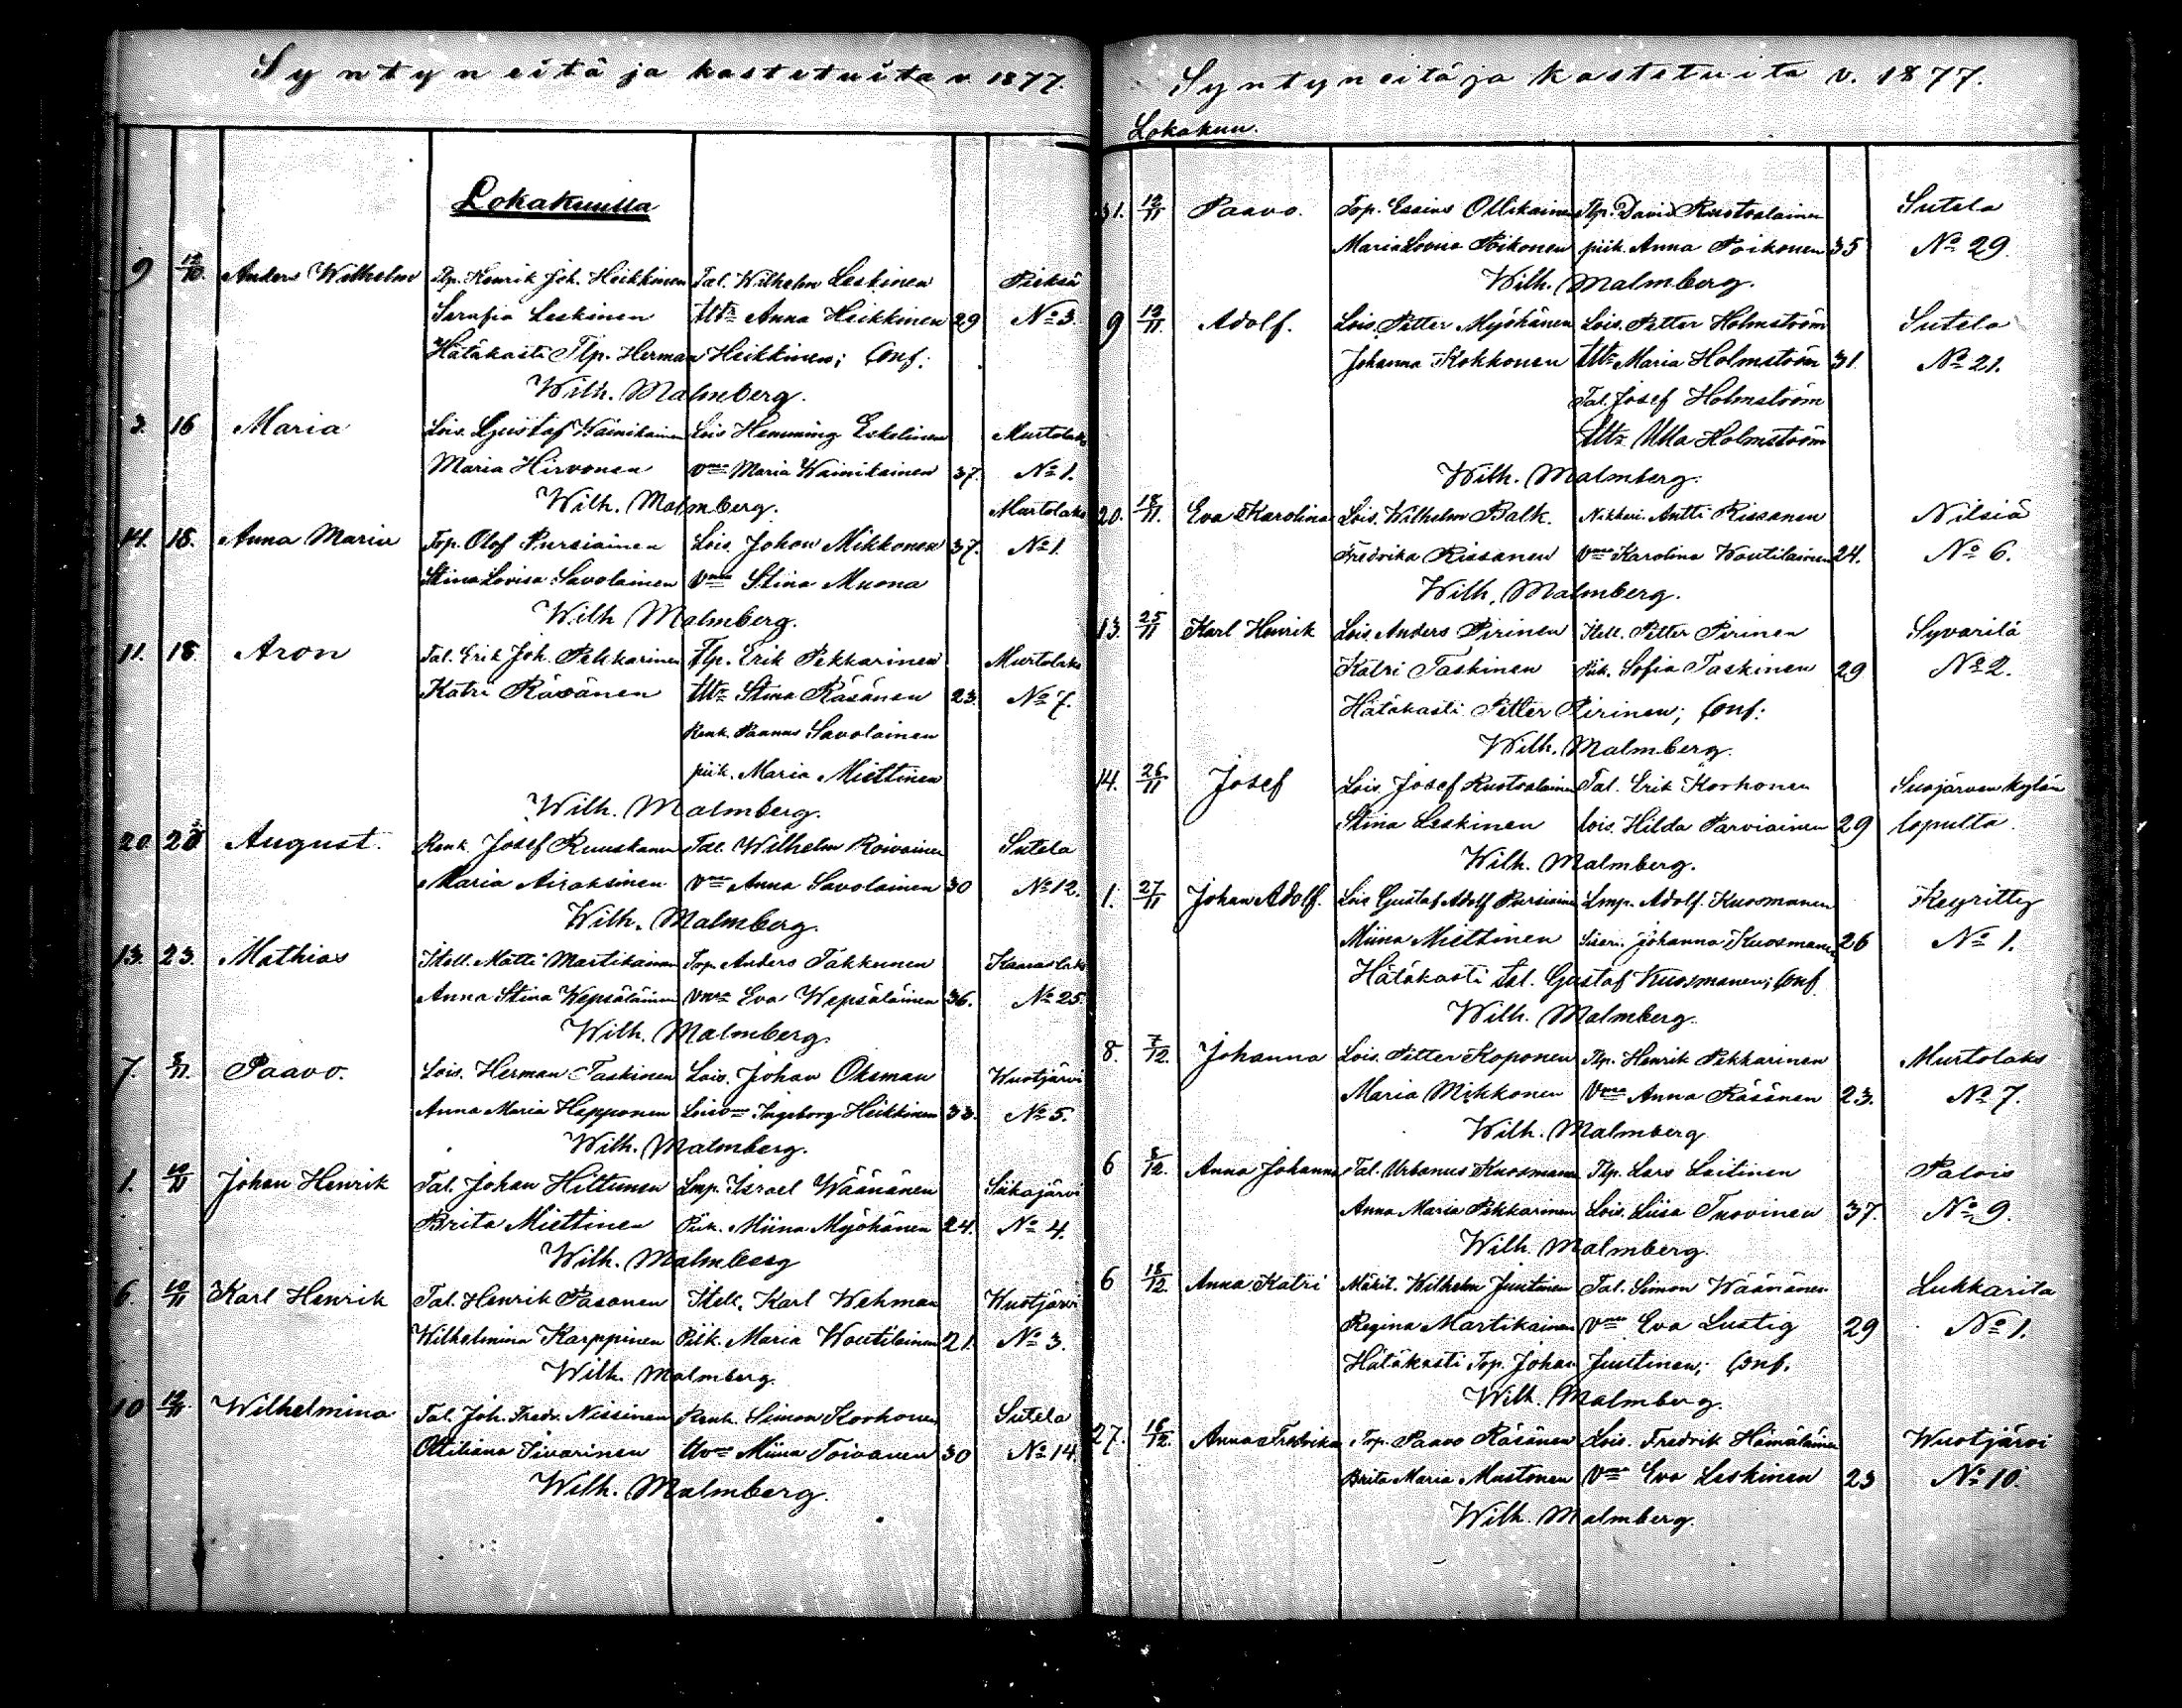 Syntyneitä ja kastetuita v. 1877.
Lokakuulla
9 12/10. Anders Wilhelm Tlp. Henrik Joh. Heikkinen Tal. Wilhelm Leskinen Pieksä
Serafia Leskinen Anna Heikkinen 29 No 3.
Hätäkasti Tlp. Herman Heikkinen; Conf:
Wilh. Malmberg.
3. 16 Maria Lois. Gustaf Wainikainen Lois Hemming Eskelinen Murtolaks
Maria Hirvonen Vmo Maria Wainikainen 37. No 1.
Wilh. Malmberg. Murtolaks
14. 18. Anna Maria Top. Olof Pursiainen Lois. Johan Mikkonen 37. No 1.
Stina Lovisa Savolainen Vmo Stina Muona
Wilh Malmberg.
11. 18. Aron Tal. Erik Joh. Pekkarinen Tlp. Erik Pekkarinen Murtolaks
Katri Räsänen Stina Räsänen 23. No 7.
Renk. Paavo Savolainen
piik. Maria Miettinen
Wilh. Malmberg.
20 August. Renk. Josef Ruuskanen Tal. Wilhelm Roivainen Sutela
Maria Airaksinen Vmo Anna Savolainen 30 No 12.
Wilh. Malmberg.
13. 23. Mathias Itell. Matti Martikainen Top. Anders Takkunen Kaaraslaks
Anna Stina Wepsäläinen Vmo Eva Wepsäläinen 36. No 25.
Wilh. Malmberg.
7. Paavo. Lois. Herman Taskinen Lois. Johan Oksman Wuotjärvi
Anna Maria Happonen Lois vmo Ingeborg Heikkinen 33. No 5.
Wilh. Malmberg.
1. 10/11 Johan Henrik Tal. Johan Hiltunen Lmp. Israel Wäänänen Siikajärvi
Brita Miettinen Piik. Miina Myöhänen 24. No 4.
Wilh. Malmberg
6. 10/11 Karl Henrik Tal. Henrik Pasanen Itell. Karl Wehman Wuotjärvi
Wilhelmina Karppinen Piik. Maria Woutilainen 21. No 3.
Wilh. Malmberg.
10 Wilhelmina Tal. Joh. Fredr. Nissinen Renk. Simon Korhonen Sutela
Ottiliana Tivarinen Miina Toivanen 30 No 14.
Wilh. Malmberg.
Syntyneitä ja kastetuita v. 1877.
Lokakuu.
31. 12/11 Paavo. Top. Essius Ollikainen Tlp. David Rustoalainen Sutela
Maria Lovisa Poikonen piik. Anna Poikonen 35 No 29.
Wilh. Malmberg.
9 12/11. Adolf. Lois. Petter Myöhänen Lois. Petter Holmström Sutela
Johanna Kokkonen Maria Holmström 31. No 21.
Tal. Josef Holmström
Ulla Holmström
Wilh. Malmberg.
20. 18/11. Eva Karolina Lois. Wilhelm Balk. Nikkari Antti Rissanen Nilsiä
Fredrika Rissanen Vmo Karolina Woutilainen 24. No 6.
Wilh. Malmberg.
13. 25/11 Karl Henrik Lois Anders Pirinen Itell. Petter Pirinen Syvarilä
Katri Taskinen Piik. Sofia Taskinen 29 No 2.
Hätäkasti Petter Pirinen; Conf:
Wilh. Malmberg.
14. 26/11 Josef Lois. Josef Rustoalainen Tal. Erik Korhonen Suojärven kylän
Stina Leskinen lois. Hilda Parviainen 29 lopulta.
Wilh. Malmberg.
1. 27/11 Johan Adolf. Lois Gustaf Adolf Pursiainen Lmp. Adolf. Kuosmanen Keyritty
Miina Miettinen Siseri. Johanna Kuosmanen 26 No 1.
Hätäkasti tal. Gustaf Kuosmanen; Conf
Wilh. Malmberg.
8. 7/12. Johanna Lois. Petter Koponen Tlp. Henrik Pekkarinen Murtolaks
Maria Mikkonen Vmo Anna Räsänen 23. No 7.
Wilh. Malmberg
6 8/12. Anna Johanna Tal. Urbanus Kuosmanen Tlp. Lars Laitinen Palois
Anna Maria Pekkarinen Lois. Liisa Tuovinen 37. No 9.
Wilh. Malmberg.
6 18/12. Anna Katri Mäkit. Wilhelm Juutinen Tal. Simon Wäänänen Lukkarila
Regina Martikainen Vmo Eva Lustig 29 No 1.
Hätäkasti Top. Johan Juutinen; Conf.
Wilh. Malmberg.
27. 16/12. Anna Fredrika Top. Paavo Räsänen Lois. Fredrik Hämäläinen Wuotjärvi
Brita Maria Mustonen Vmo Eva Leskinen 23 No 10.
Wilh. Malmberg.